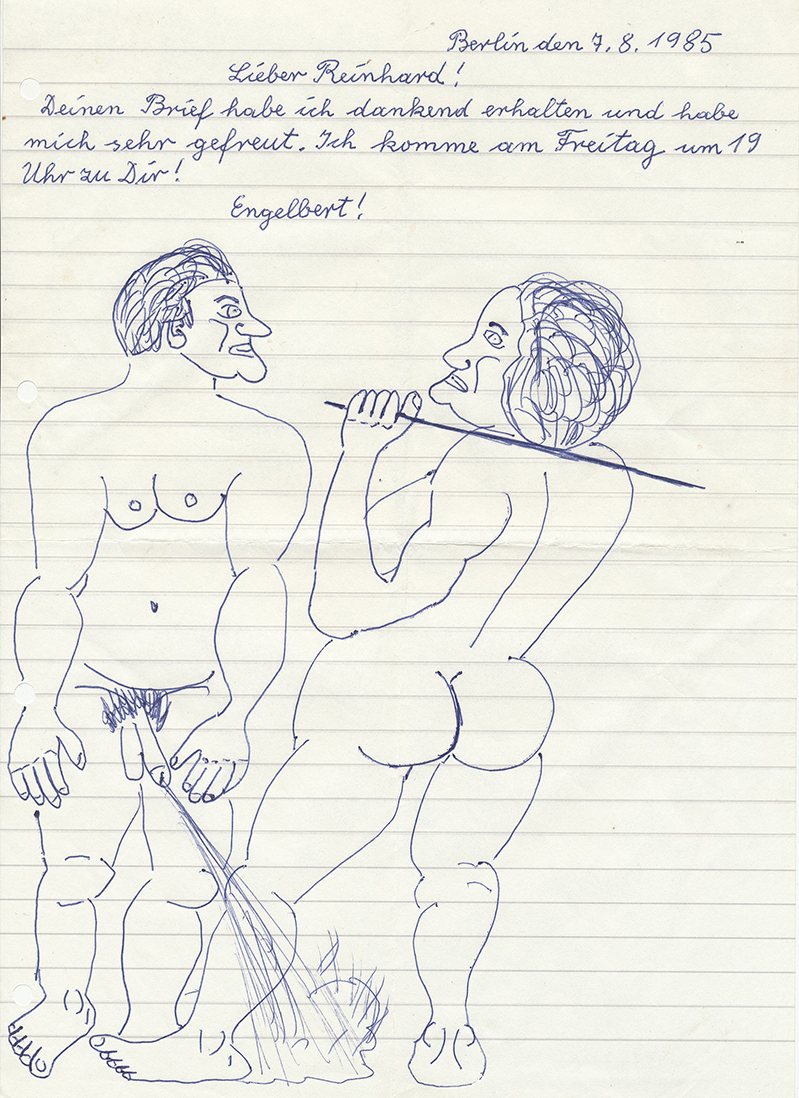 Berlin den 7. 8. 1985
Lieber Reinhard!
Deinen Brief habe ich dankend erhalten und habe
mich sehr gefreut. Ich komme am Freitag um 19
Uhr zu Dir!
Engelbert!